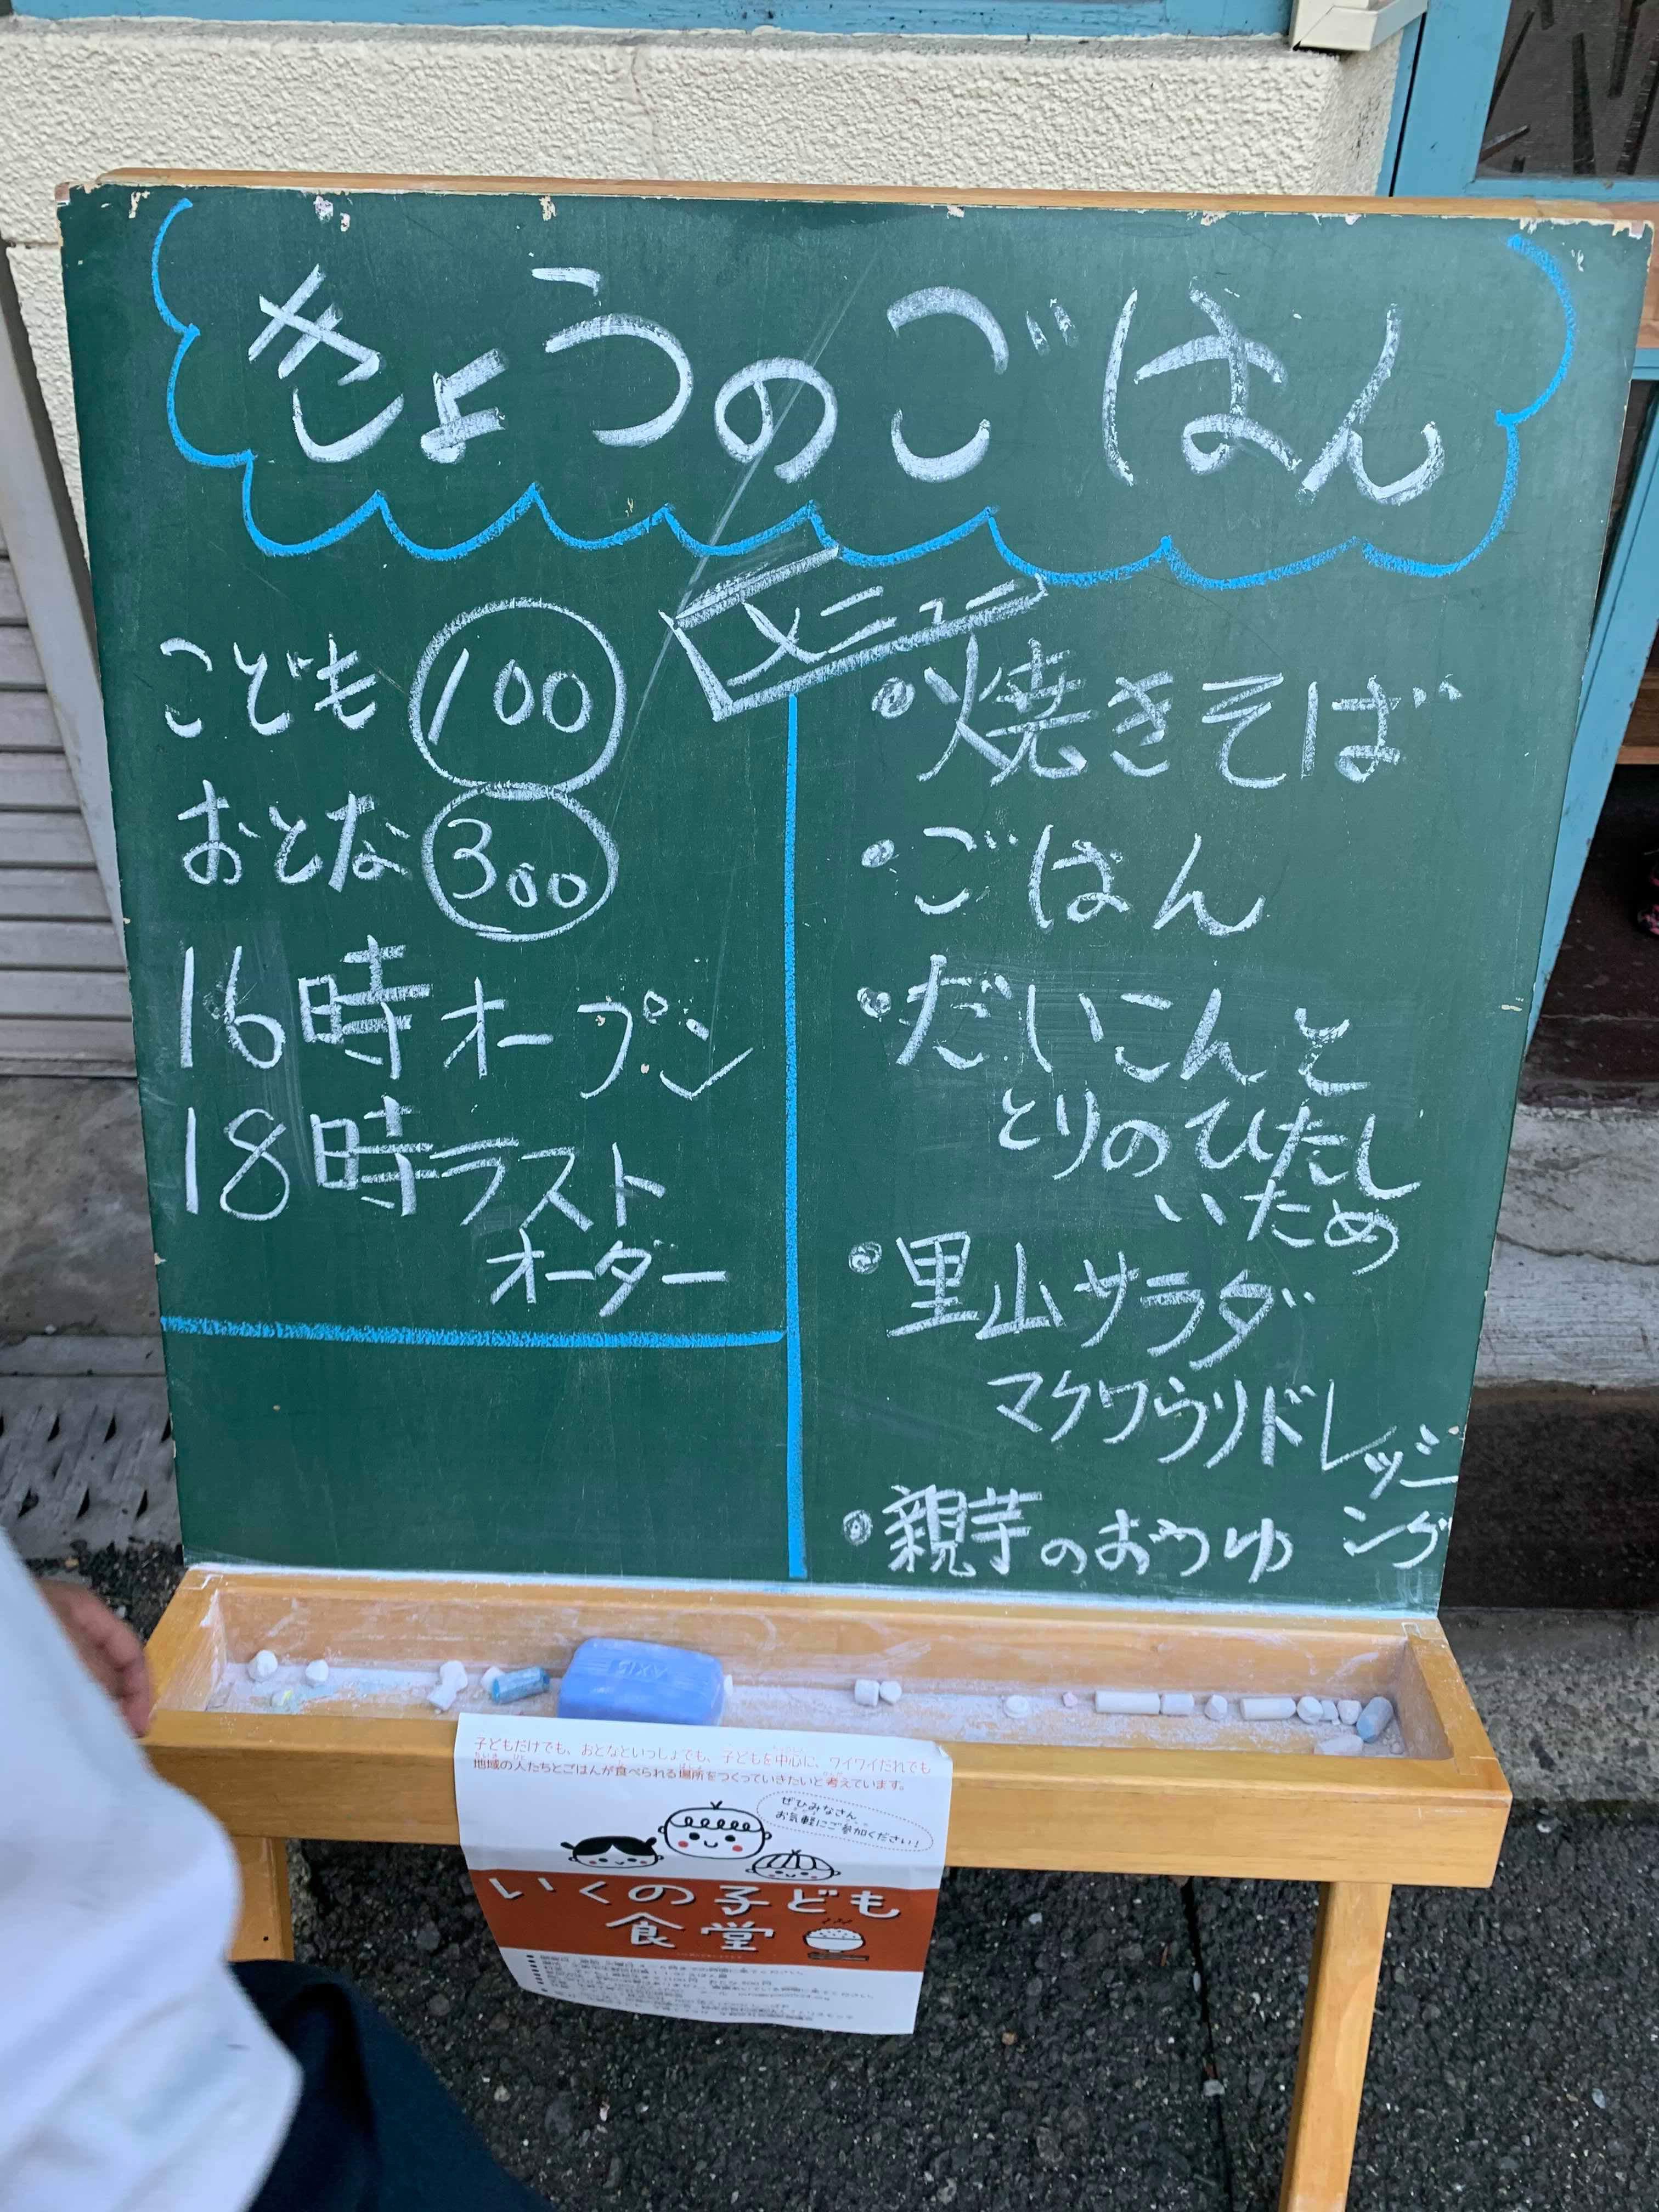 きょうのごはん
メニュー
こども 100
おとな 300
16時オープン
18時ラスト
オーダー
・焼きそば
・ごはん
・だいこんと
とりのひたし
いため
・里山サラダ
マクワウリドレッシ
ング
・親芋のおつゆ
AXIS
子どもだけでも、おとなといっしょでも、子どもを中心に、ワイワイだれでも
地域の人たちとごはんが食べられる場所をつくっていきたいと考えています。
ぜひみなさん
お気軽にご参加ください!
いくの子ども
食堂